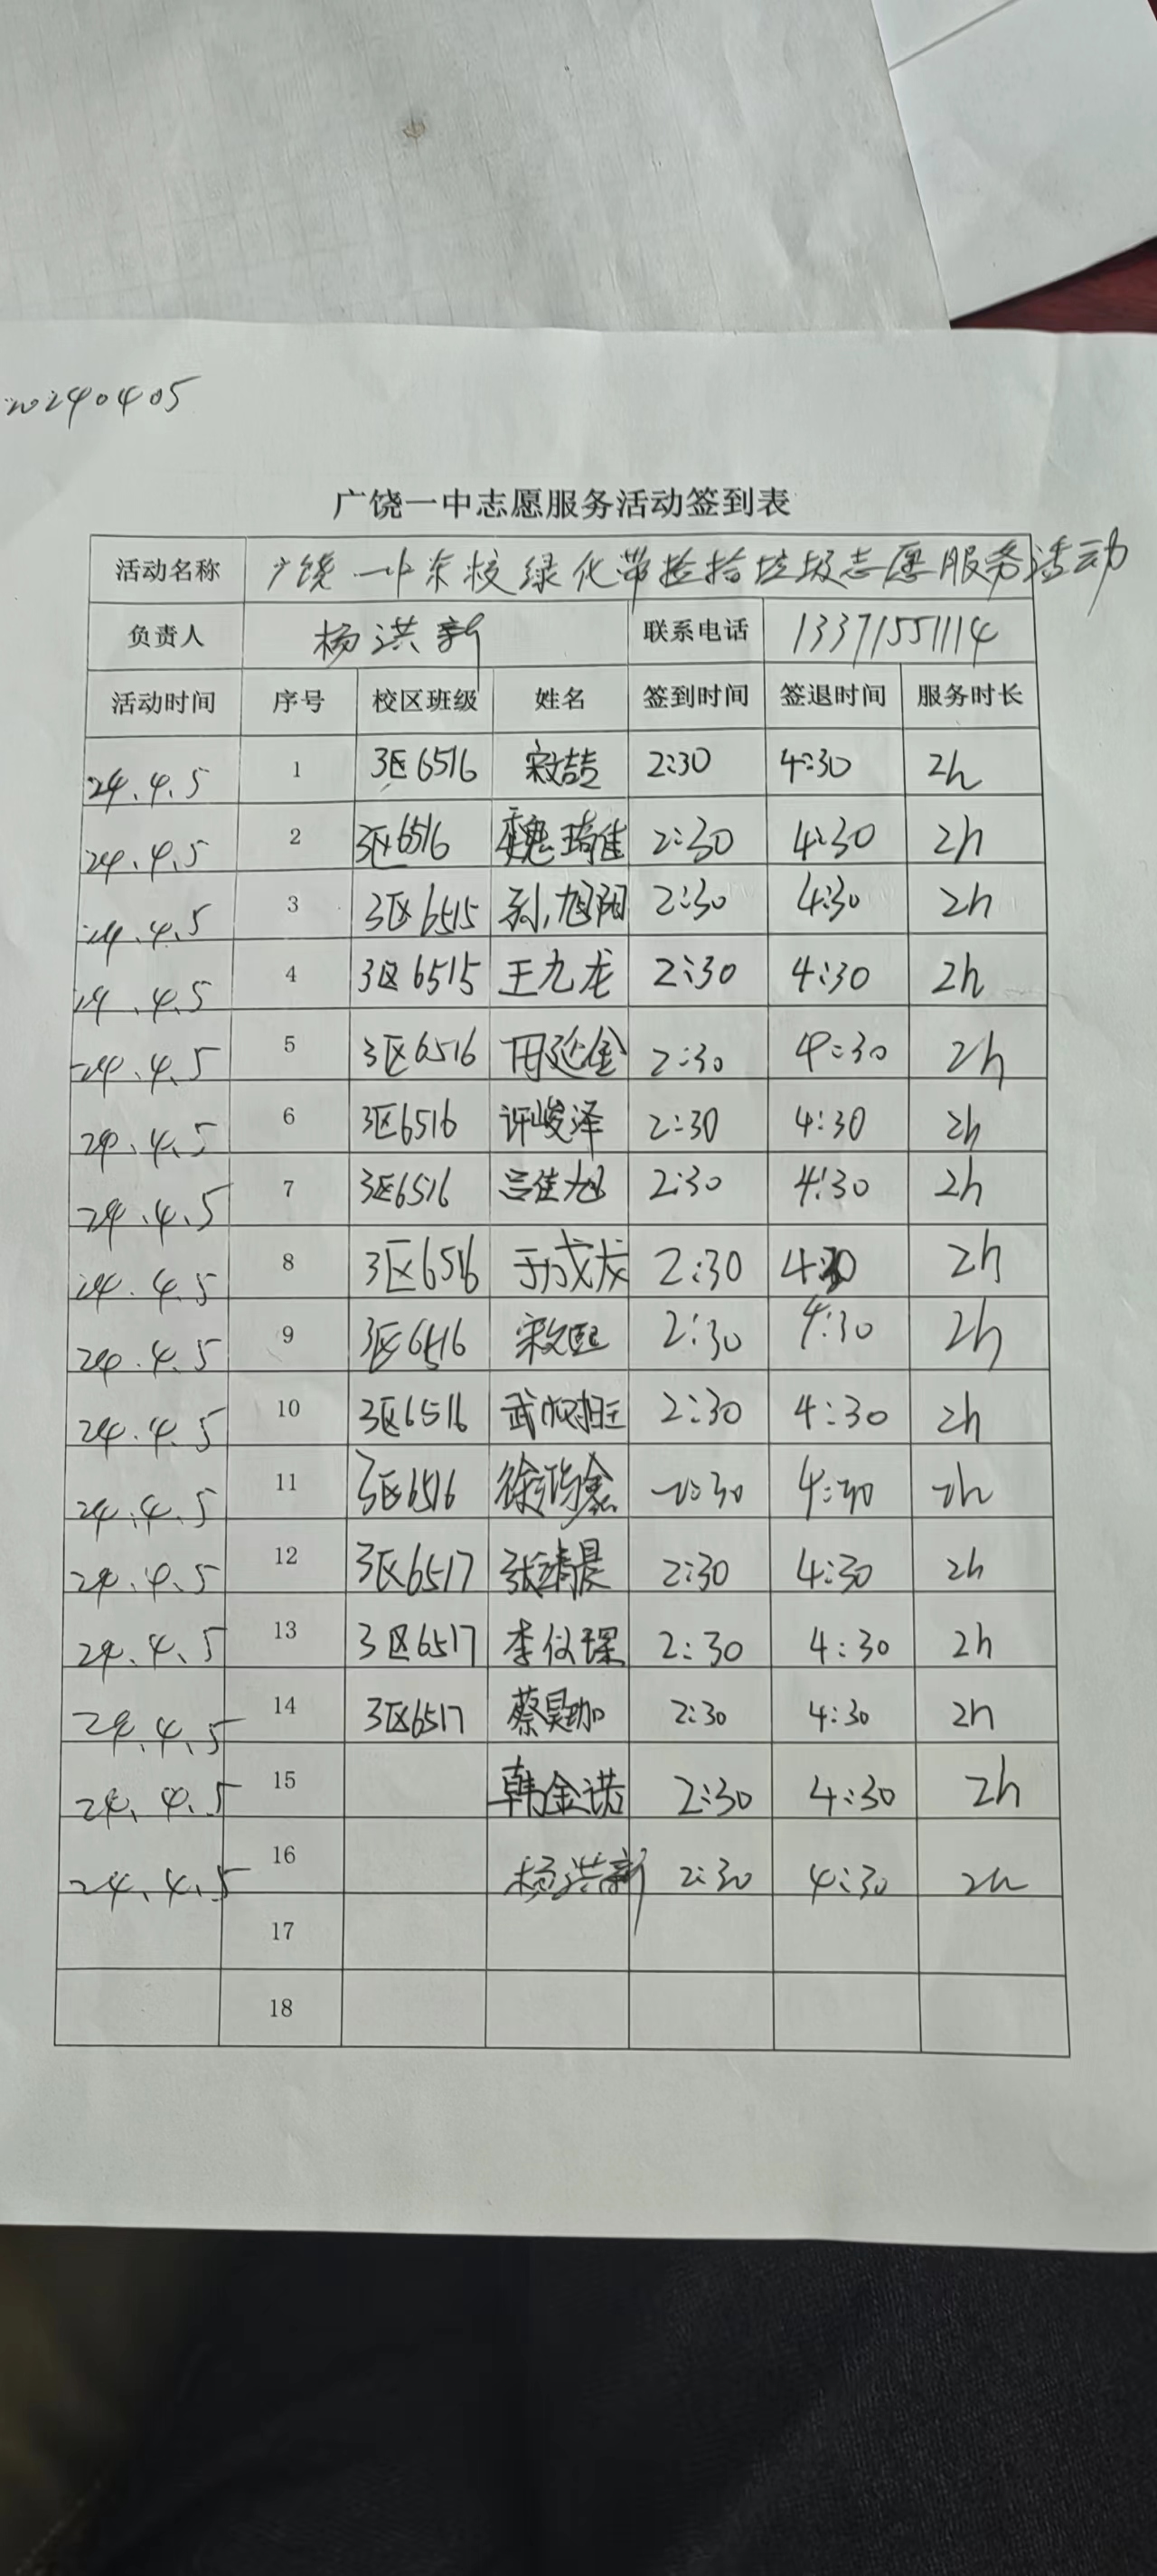 20240405
广饶一中志愿服务活动签到表
活动名称 广饶一中东校绿化带捡拾垃圾志愿服务活动
负责人 杨洪新 联系电话 13371551114
活动时间 序号 校区班级 姓名 签到时间 签退时间 服务时长
24.4.5 1 3区6516 2:30 4:30 2h
24.4.5 2 3区6516 魏琦佳 2:30 4:30 2h
24.4.5 3 3区6515 孙旭阳 2:30 4:30 2h
24.4.5 4 3区6515 王九龙 2:30 4:30 2h
24.4.5 5 3区6516 2:30 4:30 2h
24.4.5 6 3区6516 许峻泽 2:30 4:30 2h
24.4.5 7 3区6516 2:30 4:30 2h
24.4.5 8 3区6516 于成龙 2:30 4:30 2h
24.4.5 9 3区6516 宋文熙 2:30 4:30 2h
24.4.5 10 3区6516 2:30 4:30 2h
24.4.5 11 3区6516 2:30 4:30 2h
24.4.5 12 3区6517 张靖晨 2:30 4:30 2h
24.4.5 13 3区6517 李仪琛 2:30 4:30 2h
24.4.5 14 3区6517 2:30 4:30 2h
24.4.5 15 韩金诺 2:30 4:30 2h
24.4.5 16 杨洪新 2:30 4:30 2h
17
18